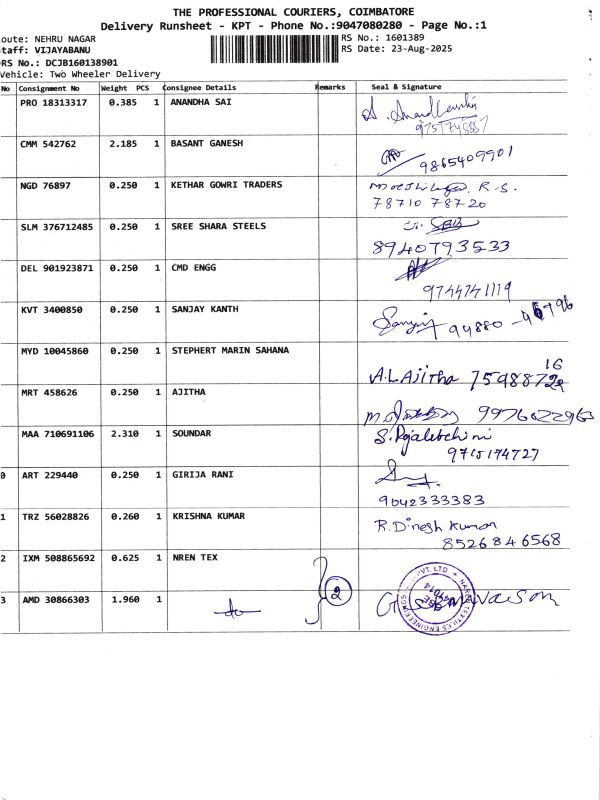 THE PROFESSIONAL COURIERS, COIMBATORE
Delivery Runsheet - KPT - Phone No.:9047080280 - Page No.:1
oute: NEHRU NAGAR
taff: VIJAYABANU
RS No.: 1601389
RS Date: 23-Aug-2025
DRS No.: DCJB160138901
Vehicle: Two Wheeler Delivery
No Consignment No Weight PCS Consignee Details Remarks Seal & Signature
PRO 18313317 0.385 1 ANANDHA SAI
CMM 542762 2.185 1 BASANT GANESH 9865409901
NGD 76897 0.250 1 KETHAR GOWRI TRADERS R.S.
78710 78720
SLM 376712485 0.250 1 SREE SHARA STEELS
8940793533
DEL 901923871 0.250 1 CMD ENGG
9744741119
KVT 3400850 0.250 1 SANJAY KANTH
MYD 10045860 0.250 1 STEPHERT MARIN SAHANA
A.L.Ajitha
MRT 458626 0.250 1 AJITHA 9976022963
MAA 710691106 2.310 1 SOUNDAR
9715174727
0 ART 229440 0.250 1 GIRIJA RANI
9042333383
1 TRZ 56028826 0.260 1 KRISHNA KUMAR R.Dinesh Kumar
8526846568
2 IXM 508865692 0.625 1 NREN TEX
3 AMD 30866303 1.960 1 2